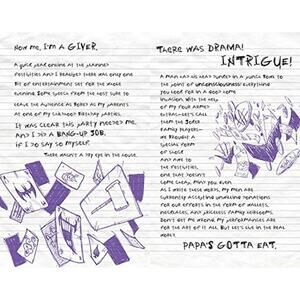 Now me, I'm a GIVER.
A quick peek online at the planned
festivities and I realized there was only one
bit of entertainment set for the whole
evening. Some speech from the host sure to
leave the audience as bored as my parents
at one of my childhood birthday parties.
It was clear this party needed me.
And I did a BANG-UP JOB,
if I do say so myself.
There wasn't a dry eye in the house.
There was DRAMA!
INTRIGUE!
A man had his head dunked in a punch bowl to
the point of unconsciousness! Everything
you look for in a good home
invasion. With the help
of four of my armed
extras—let's call
them the
family players—
we brought a
special form
of
and awe to
the festivities,
one that doesn't
come cheap, mind you. Even
as I write these words, my men are
currently accepting unwilling donations
for our efforts in the form of wallets,
necklaces, and priceless family heirlooms.
Don't get me wrong, my performances are
for the art of it all. But let's live in the real
world.
PAPA'S GOTTA EAT.